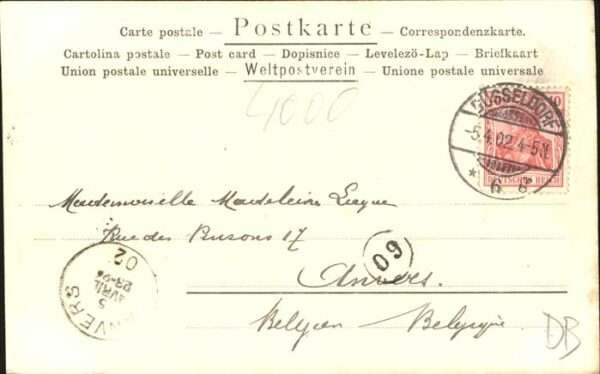 Carte postale — Postkarte — Correspondenzkarte.
Cartolina postale — Post card — Dopisnice — Levelezö-Lap — Briefkaart
Union postale universelle — Weltpostverein — Unione postale universale
4000
DÜSSELDORF
-5.4.02.4-5N.
* 6 g.
DEUTSCHES REICH
Mademoiselle Madeleine
Rue des Buisons 17
Anvers.
Belgien – Belgique.
60
ANVERS
5
AVRIL
02
DB